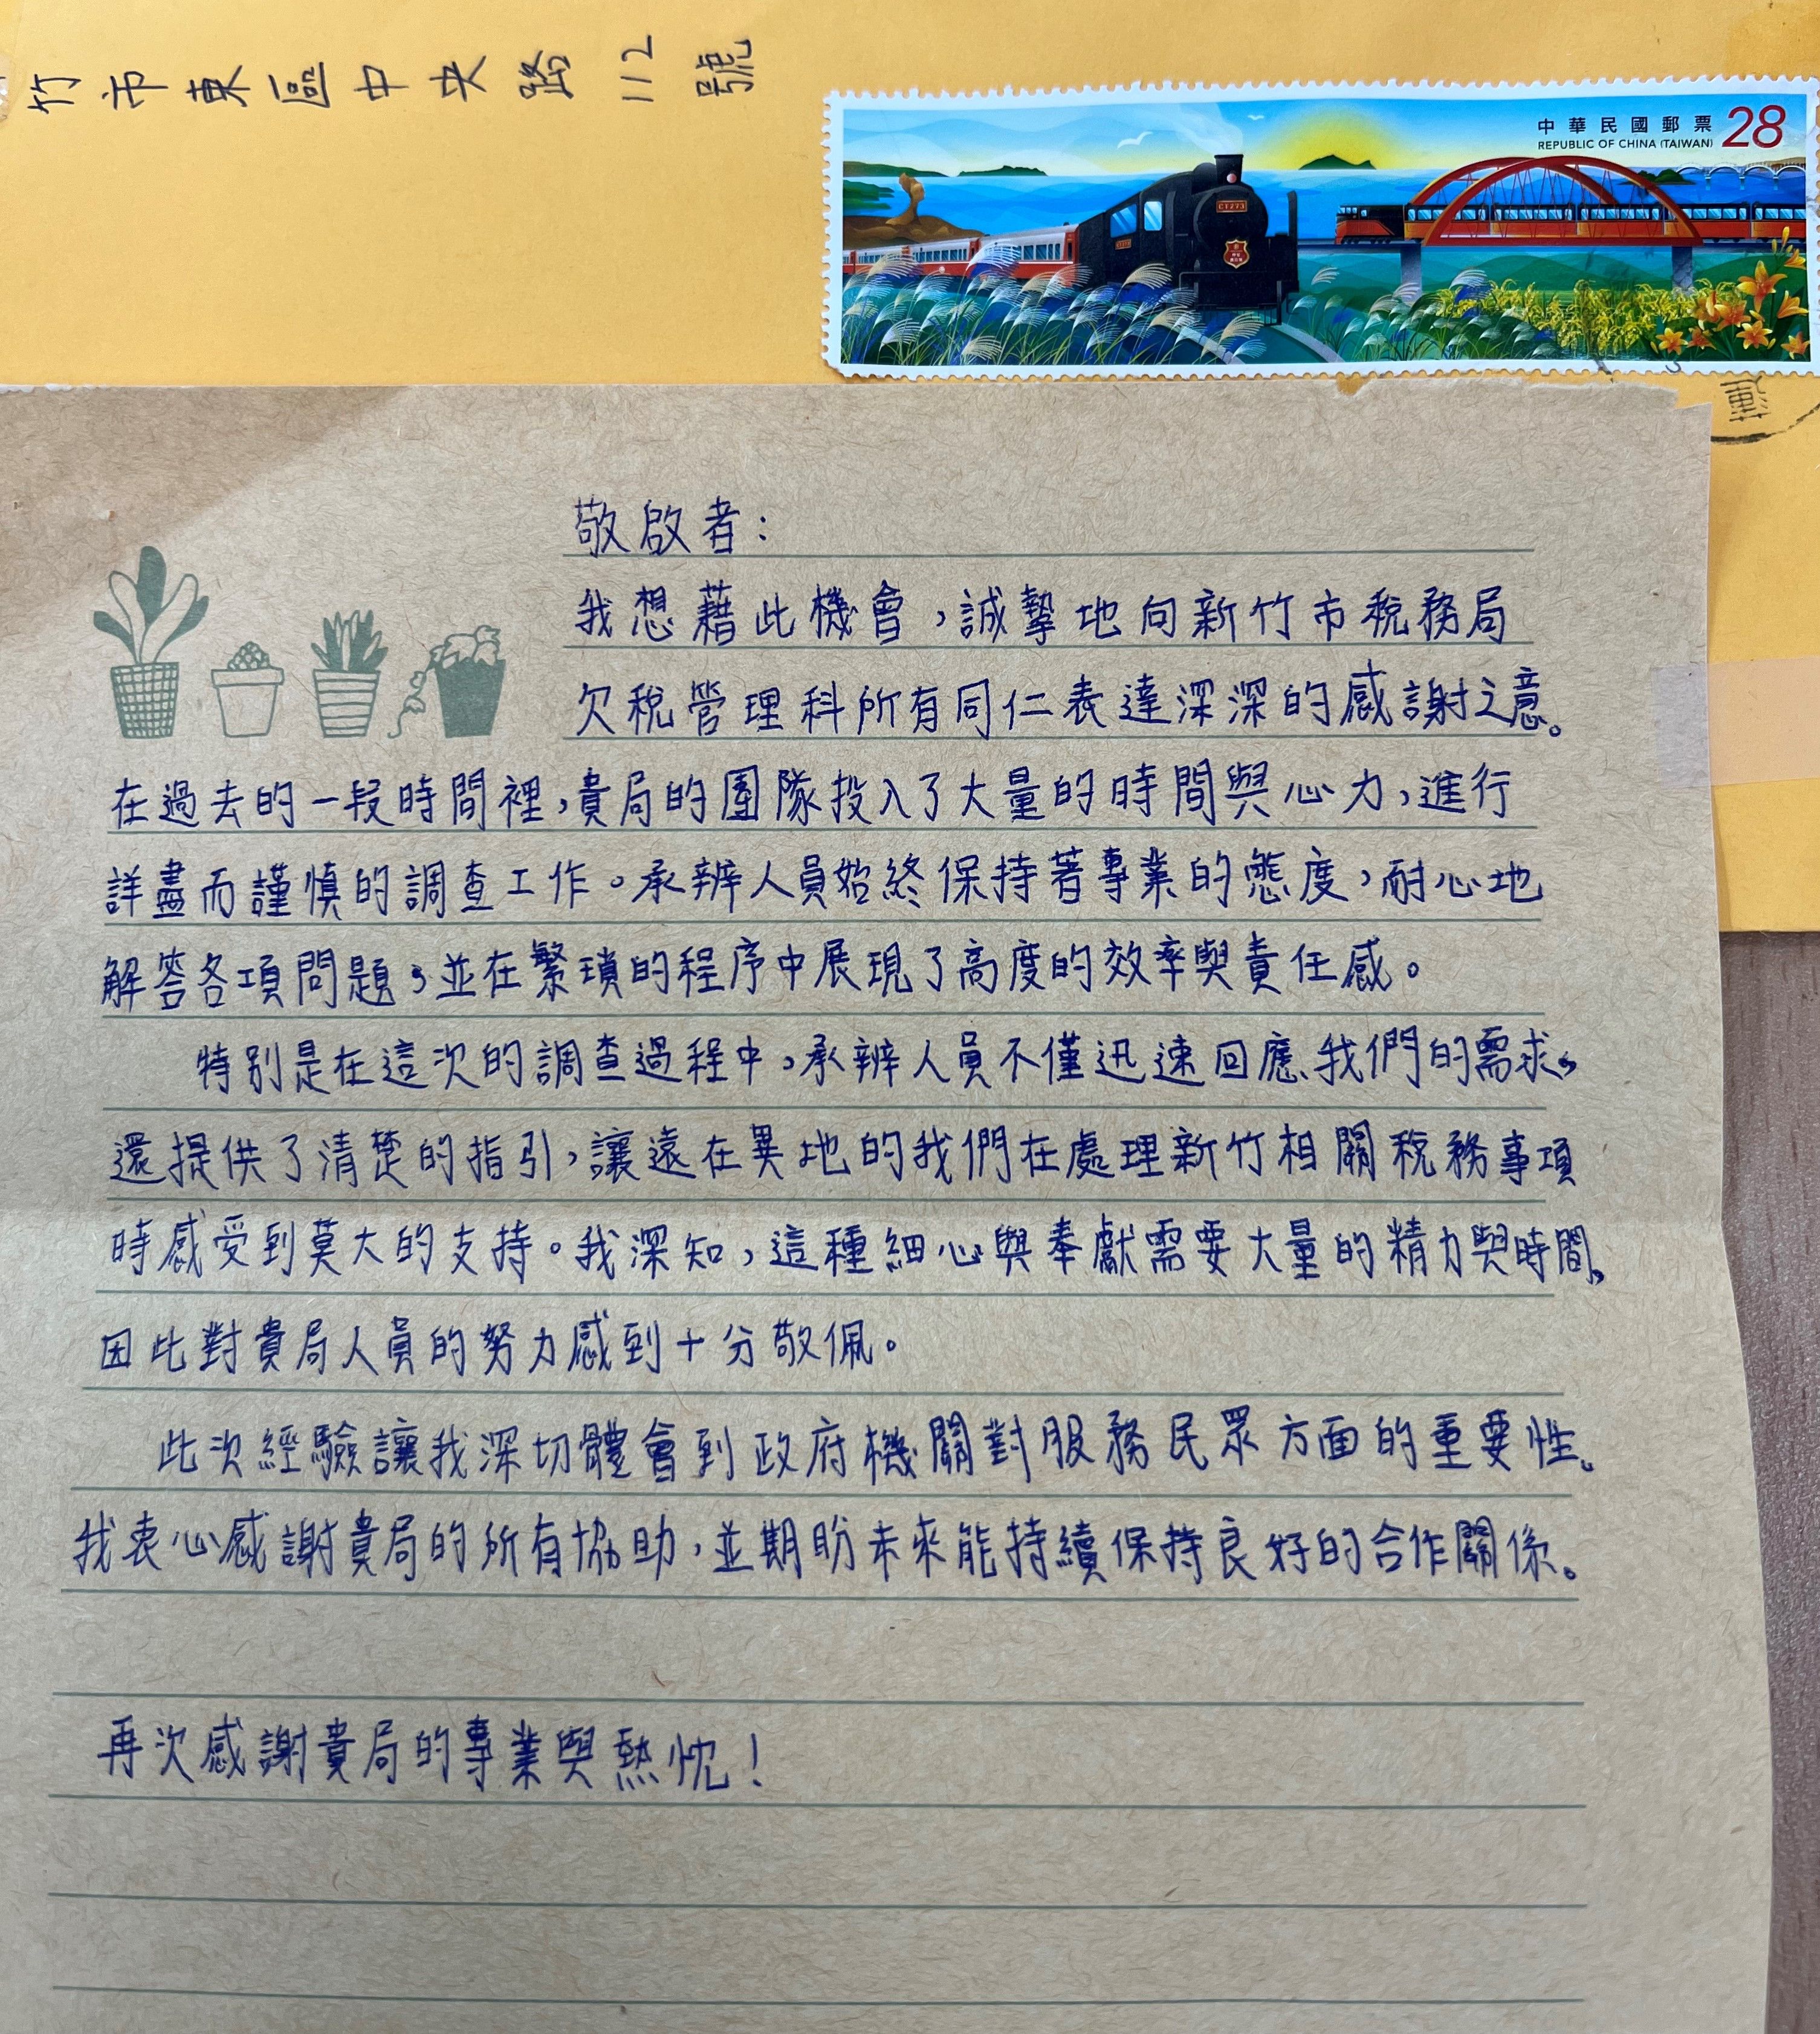 竹市東區中央路112號
中華民國郵票 28
REPUBLIC OF CHINA (TAIWAN)
CT273
敬啟者：
我想藉此機會，誠摯地向新竹市稅務局
欠稅管理科所有同仁表達深深的感謝之意。
在過去的一段時間裡，貴局的團隊投入了大量的時間與心力，進行
詳盡而謹慎的調查工作。承辦人員始終保持著專業的態度，耐心地
解答各項問題，並在繁瑣的程序中展現了高度的效率與責任感。
特別是在這次的調查過程中，承辦人員不僅迅速回應我們的需求，
還提供了清楚的指引，讓遠在異地的我們在處理新竹相關稅務事項
時感受到莫大的支持。我深知，這種細心與奉獻需要大量的精力與時間，
因此對貴局人員的努力感到十分敬佩。
此次經驗讓我深切體會到政府機關對服務民眾方面的重要性。
我衷心感謝貴局的所有協助，並期盼未來能持續保持良好的合作關係。
再次感謝貴局的專業與熱忱！